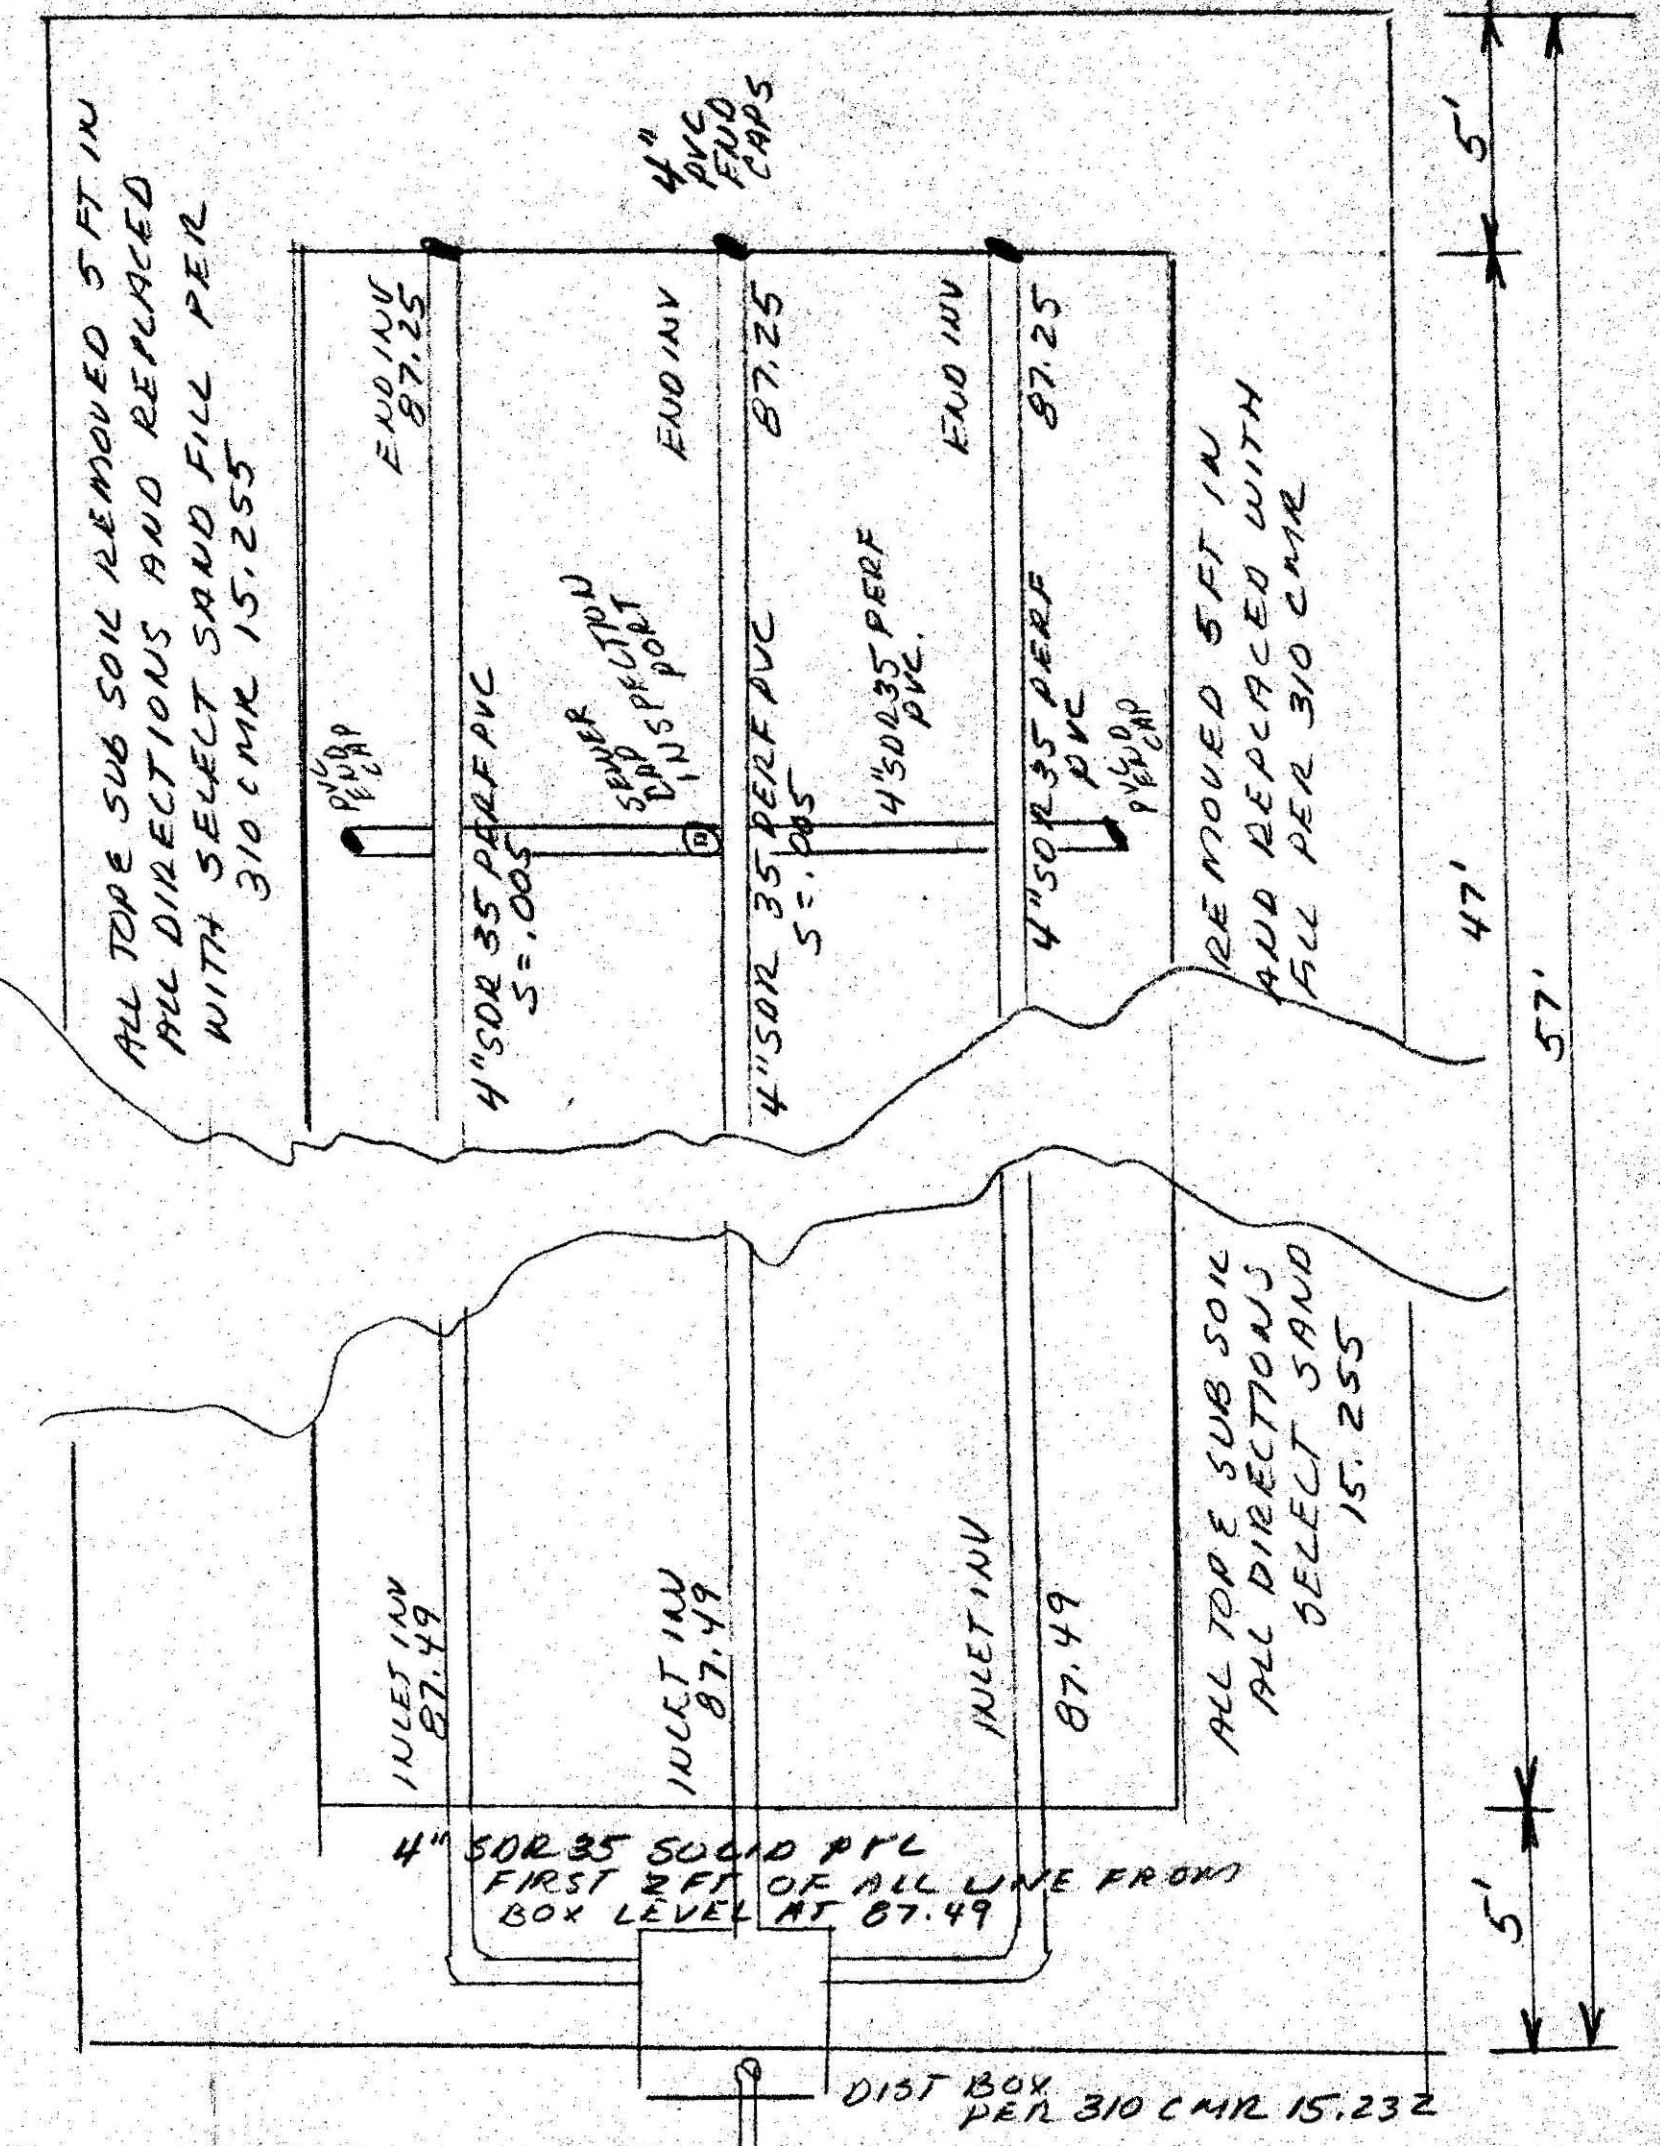 ALL TOP & SUB SOIL REMOVED 5 FT IN
ALL DIRECTIONS AND REPLACED
WITH SELECT SAND FILL PER
310 CMR 15.255
4"
PVC
END
CAPS
5'
END INV
87.25
END INV
87.25
END INV
87.25
PVC
END
CAP
4" SDR 35 PERF PVC
S=.005
SEWER
CAP
INSPECTION
PORT
4" SDR 35 PERF PVC
S=.005
4" SDR 35 PERF
PVC.
4" SDR 35 PERF
PVC
PVC
END
CAP
REMOVED 5 FT IN
AND REPLACED WITH
FILL PER 310 CMR
47'
57'
INLET INV
87.49
INLET INV
87.49
INLET INV
87.49
ALL TOP & SUB SOIL
ALL DIRECTIONS
SELECT SAND
15.255
4" SDR 35 SOLID PVC
FIRST 2 FT OF ALL LINE FROM
BOX LEVEL AT 87.49
5'
DIST BOX
PER 310 CMR 15.232